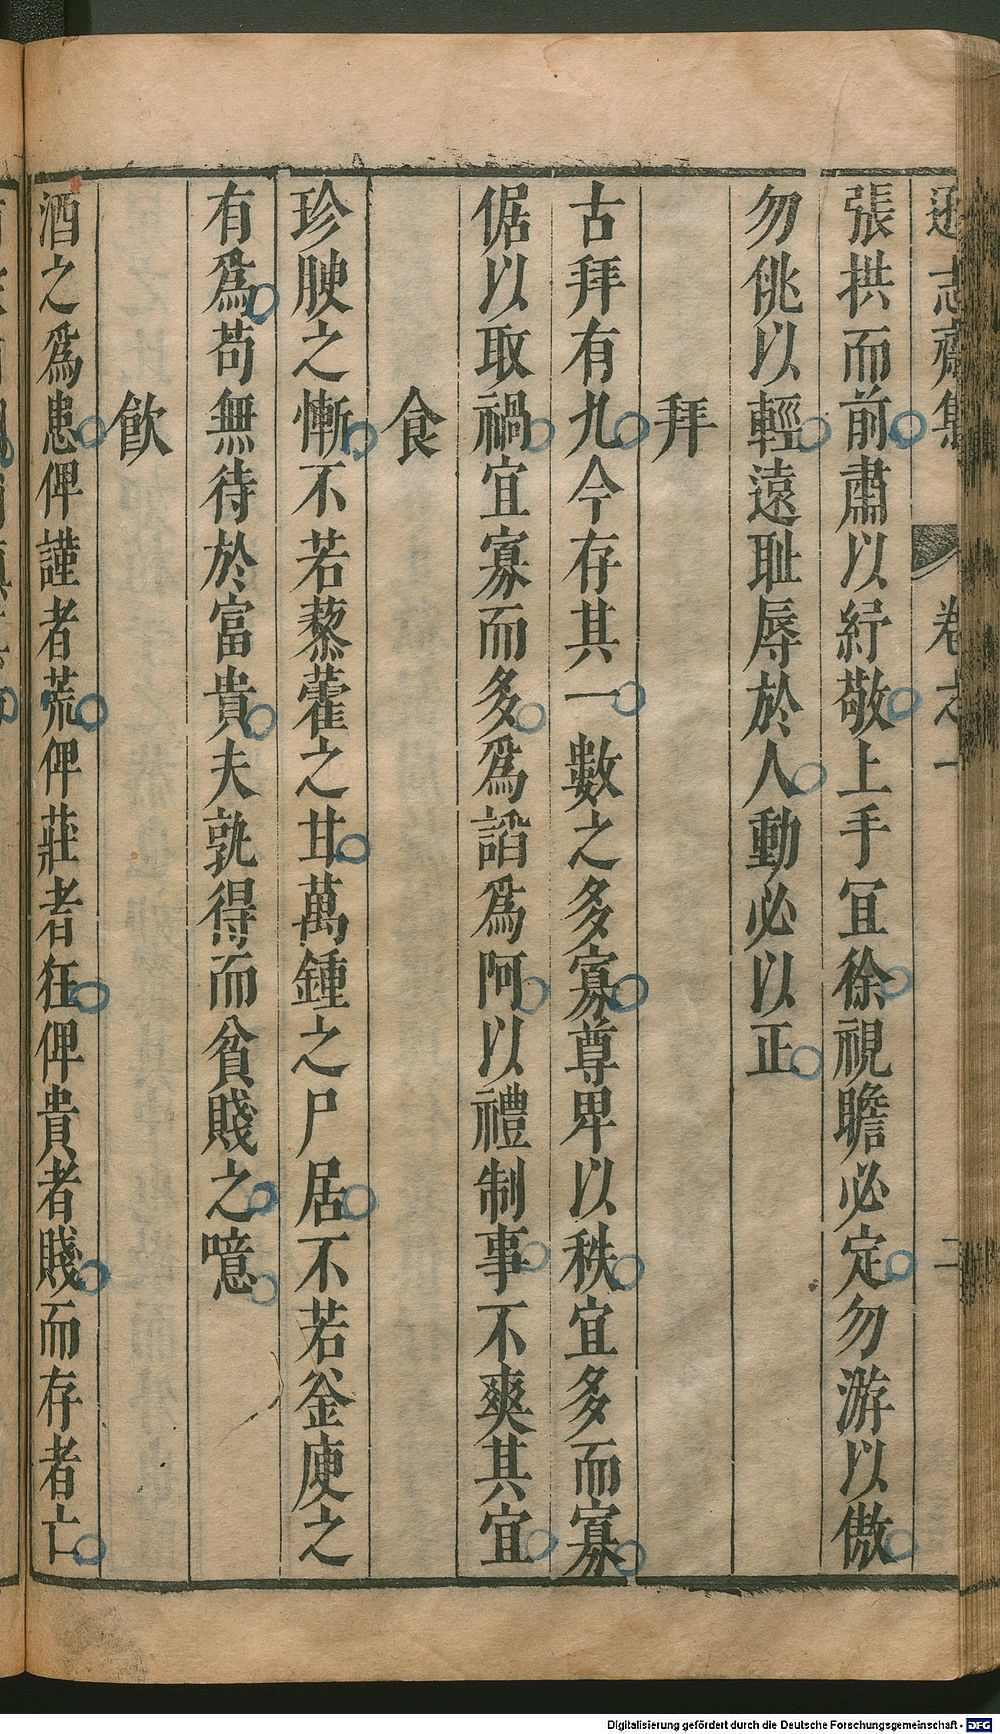 遜志齋集 卷之一 二
張拱而前肅以紓敬上手宜徐視瞻必定勿游以傲
勿佻以輕遠恥辱於人動必以正
拜
古拜有九今存其一數之多寡尊卑以秩宜多而寡
倨以取禍宜寡而多爲謟爲阿以禮制事不爽其宜
食
珍腴之慚不若藜藿之甘萬鍾之尸居不若釡庾之
有爲苟無待於富貴夫孰得而貧賤之噫
飲
酒之爲患俾謹者荒俾莊者狂俾貴者賤而存者亡
Digitalisierung gefördert durch die Deutsche Forschungsgemeinschaft - DFG